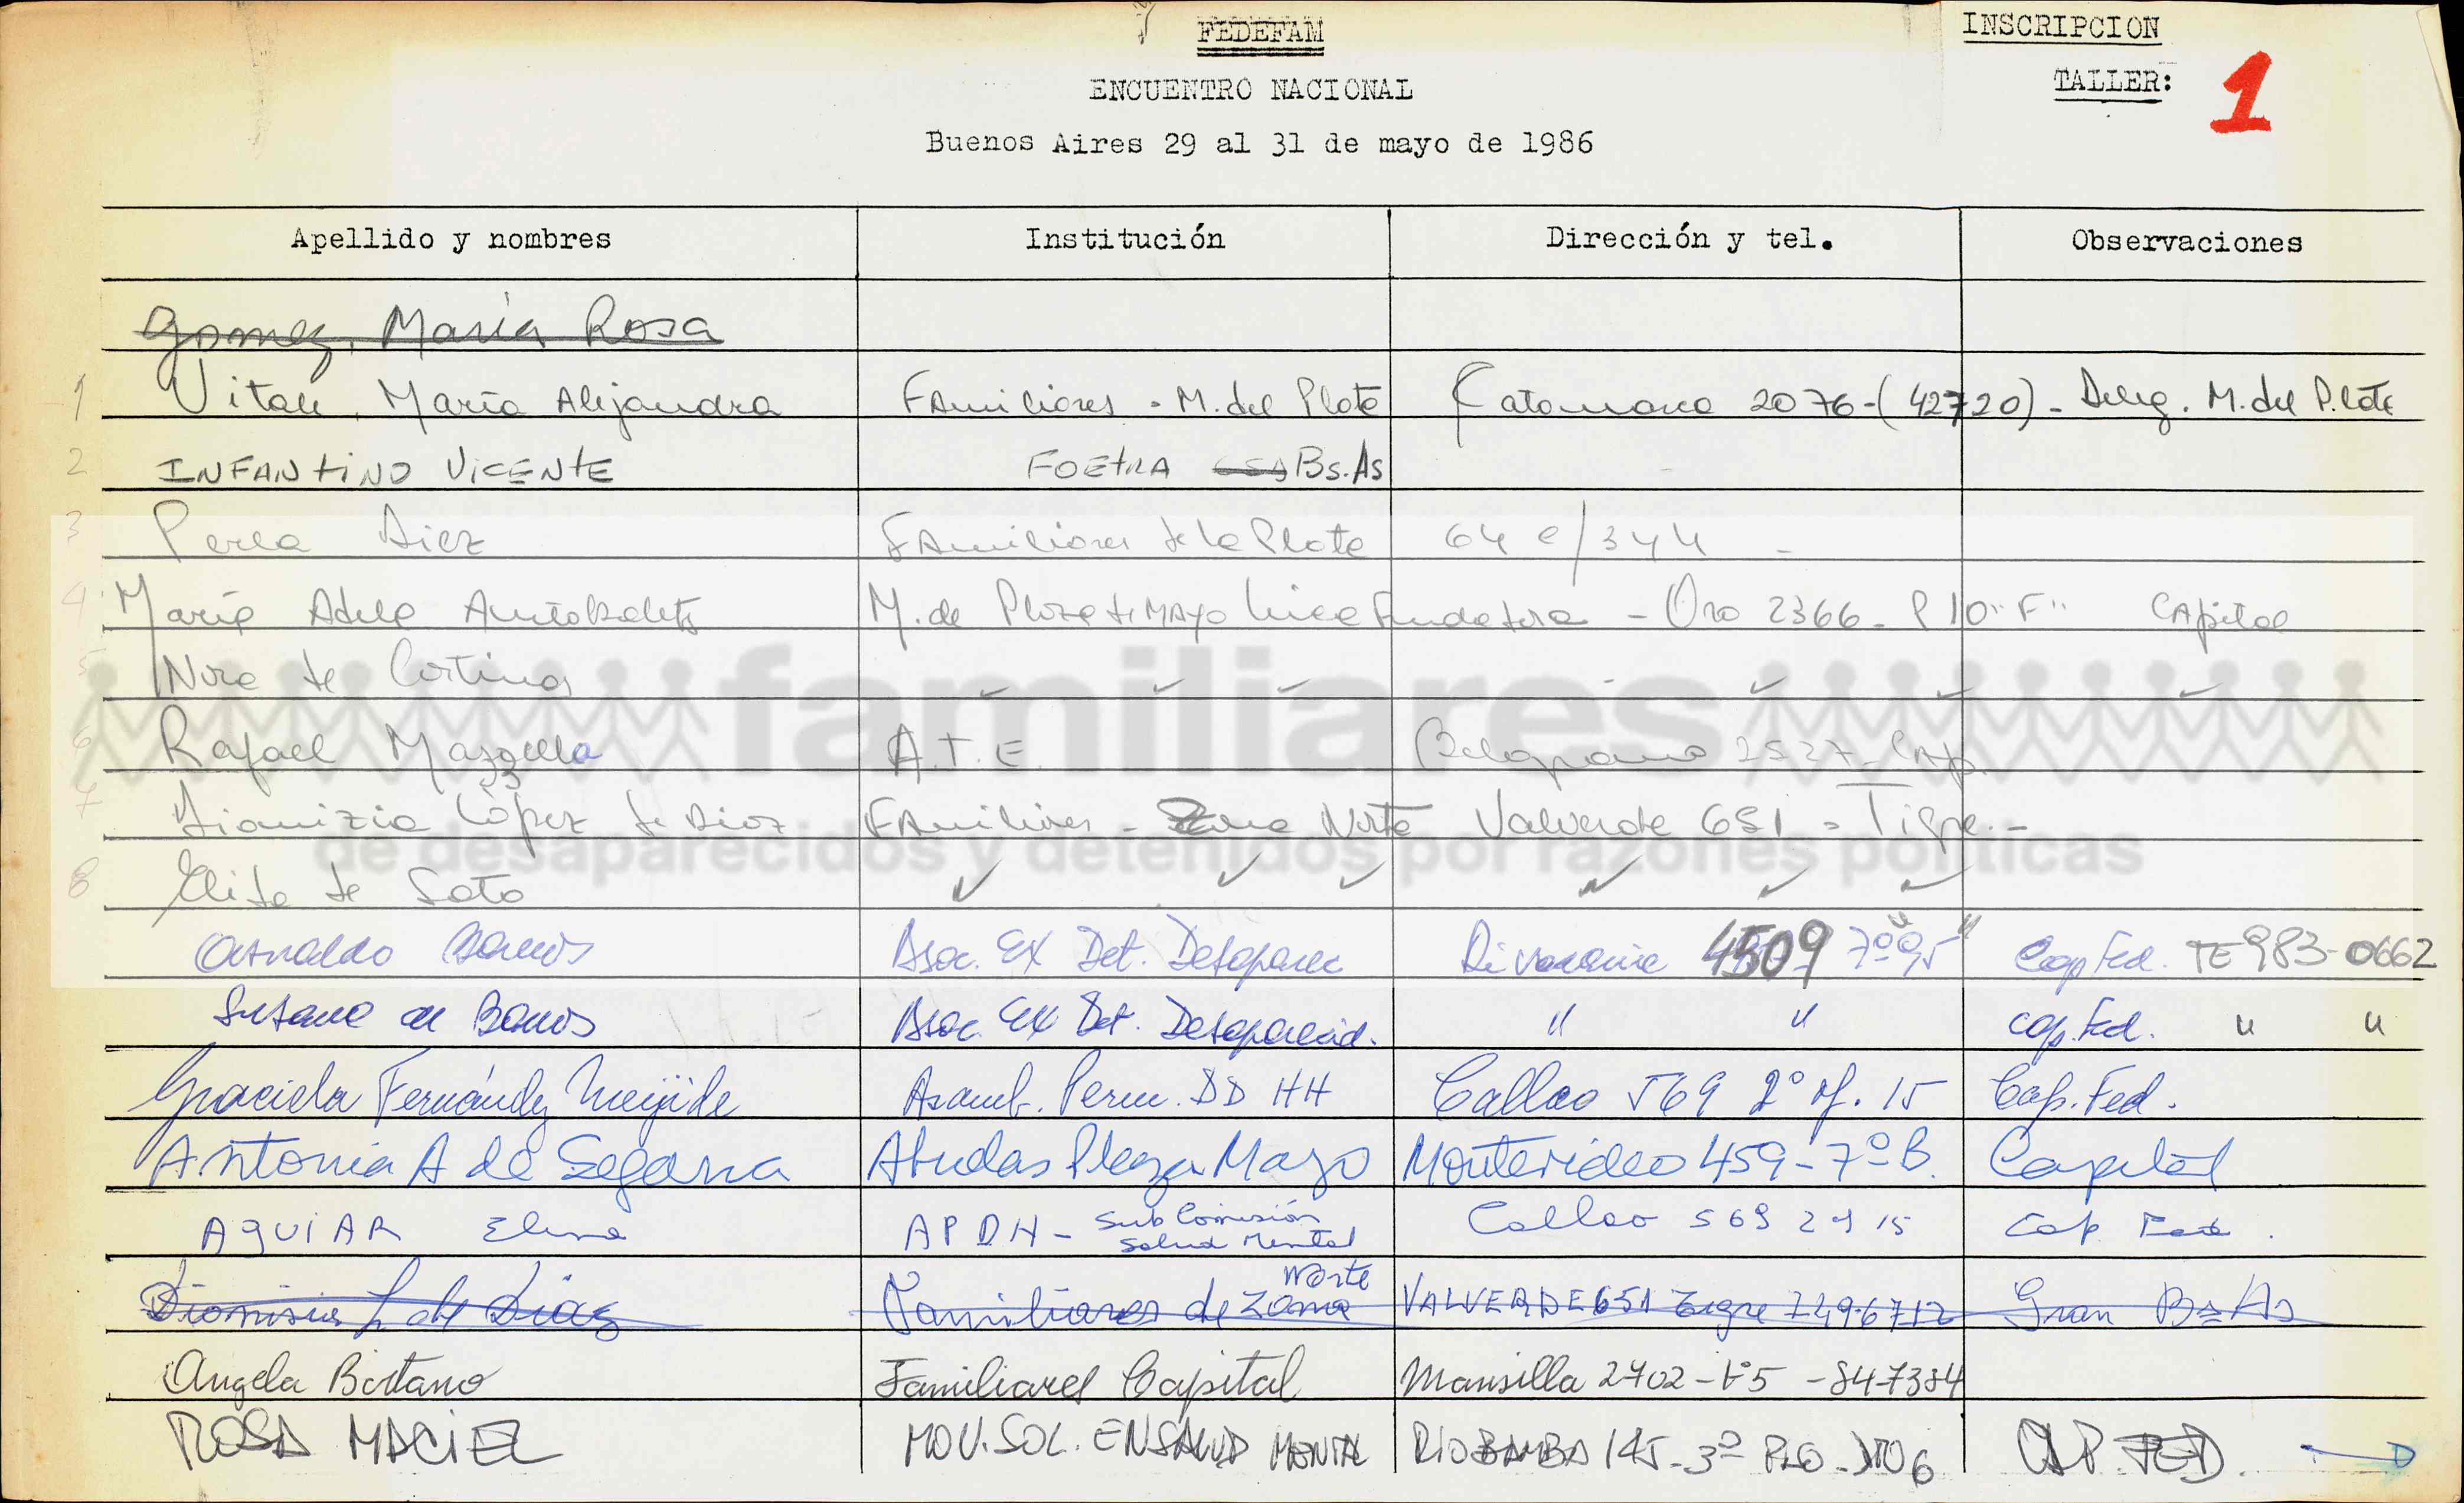 FEDEFAM
INSCRIPCION
ENCUENTRO NACIONAL
TALLER: 1
Buenos Aires 29 al 31 de mayo de 1986
Apellido y nombres Institución Dirección y tel. Observaciones
Gomez, María Rosa
1 Vitale, María Alejandra FAmiliares - M. del Plata Catamarca 2076-(42720)- Deleg. M. del Plata
2 INFANTINO VICENTE FOETRA Bs.As
3 Perla Diez FAmiliares de La Plata 64 e/3 y 4 -
4 María Adela Antokoletz M. de Plaza de MAyo Linea Fundadora - Oro 2366- P 10 "F" CApital
5 Nora de Cortiñas
6 Rafael Mazzella A.T.E. Belgrano 2527- CAp.
7 Dionizia López de Diaz FAmiliares - Zona Norte Valverde 651 - Tigre.-
8 Elida de Soto
familiares
de desaparecidos y detenidos por razones políticas
Osvaldo Barros Asoc. Ex Det. Desaparec Rivadavia 4509 7º "95" Cap Fed. TE 983-0662
Susana de Barros Asoc. Ex Det. Desaparecid. " " Cap. Fed. " "
Graciela Fernández Meijide Asamb. Perm. DD HH Callao 569 2º of. 15 Cap. Fed.
Antonia A de Segarra Abuelas Plaza Mayo Montevideo 459-7º B. Capital
AGUIAR Elina APDH - Sub Comisión Salud Mental Callao 569 2º 15 Cap Fed.
Dionisia L de Diaz Familiares de Zona Norte VALVERDE 651 Tigre 749-6712 Gran Bs As
Angela Boitano Familiares Capital Mansilla 2702 - 5 - 847384
ROSA MACIEL MOV. SOL. EN SALUD MENTAL RIOBAMBA 145- 3º PISO - DTO 6 CAP. FED.